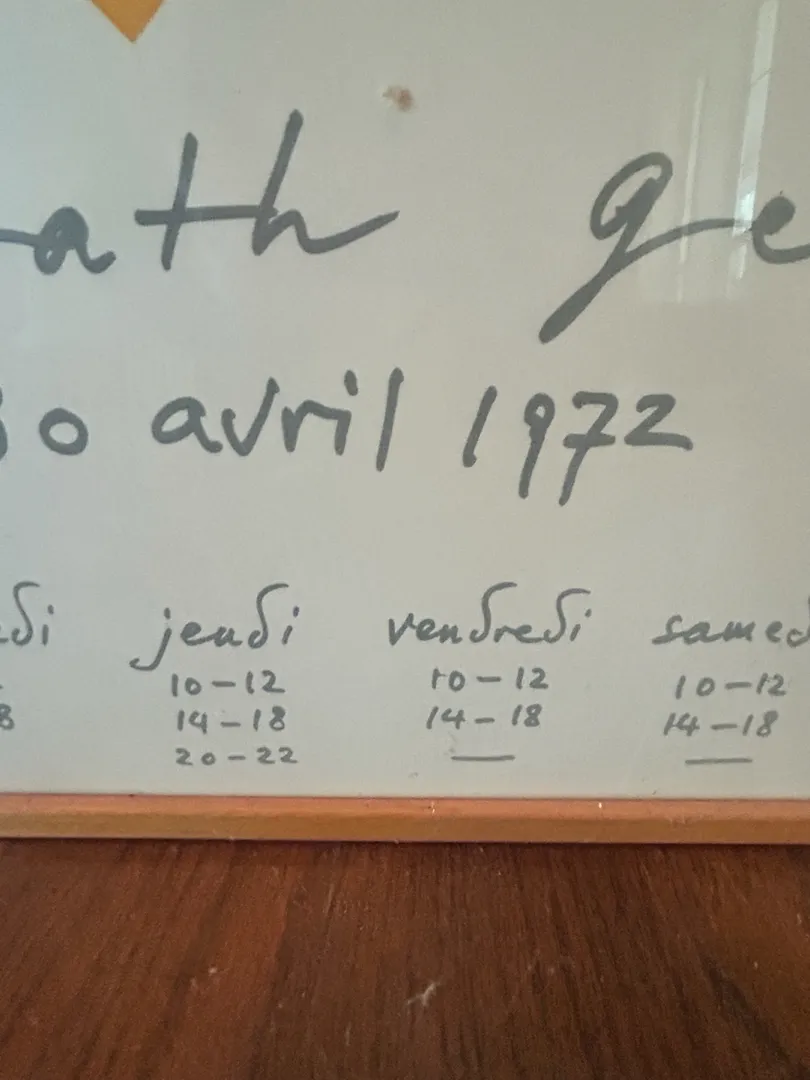 ath ge
30 avril 1972
di jeudi vendredi samed
10-12 10-12 10-12
8 14-18 14-18 14-18
20-22 — —